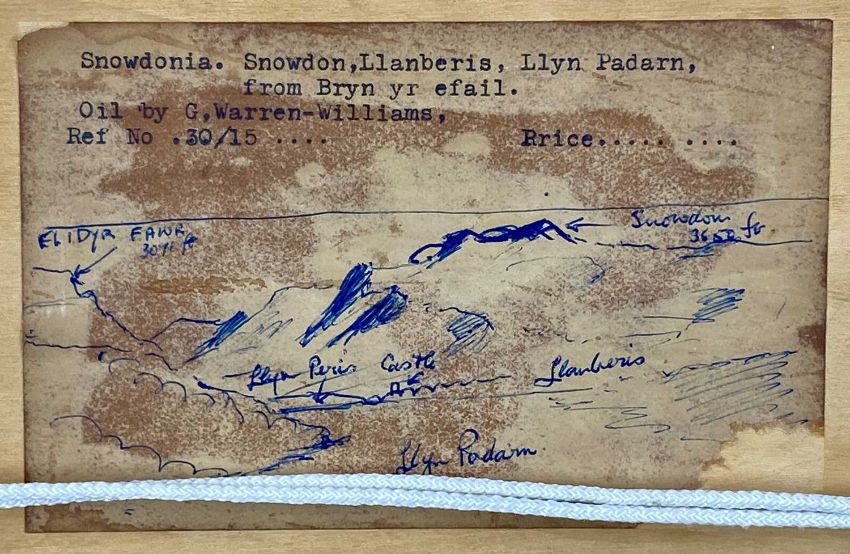 Snowdonia. Snowdon,Llanberis, Llyn Padarn,
from Bryn yr efail.
Oil by G,Warren-Williams,
Ref No .30/15 .... Rrice..... ....
ELIDYR FAWR
Snowdon
ft.
Llyn Peris Castle
Llanberis
Llyn Padarn